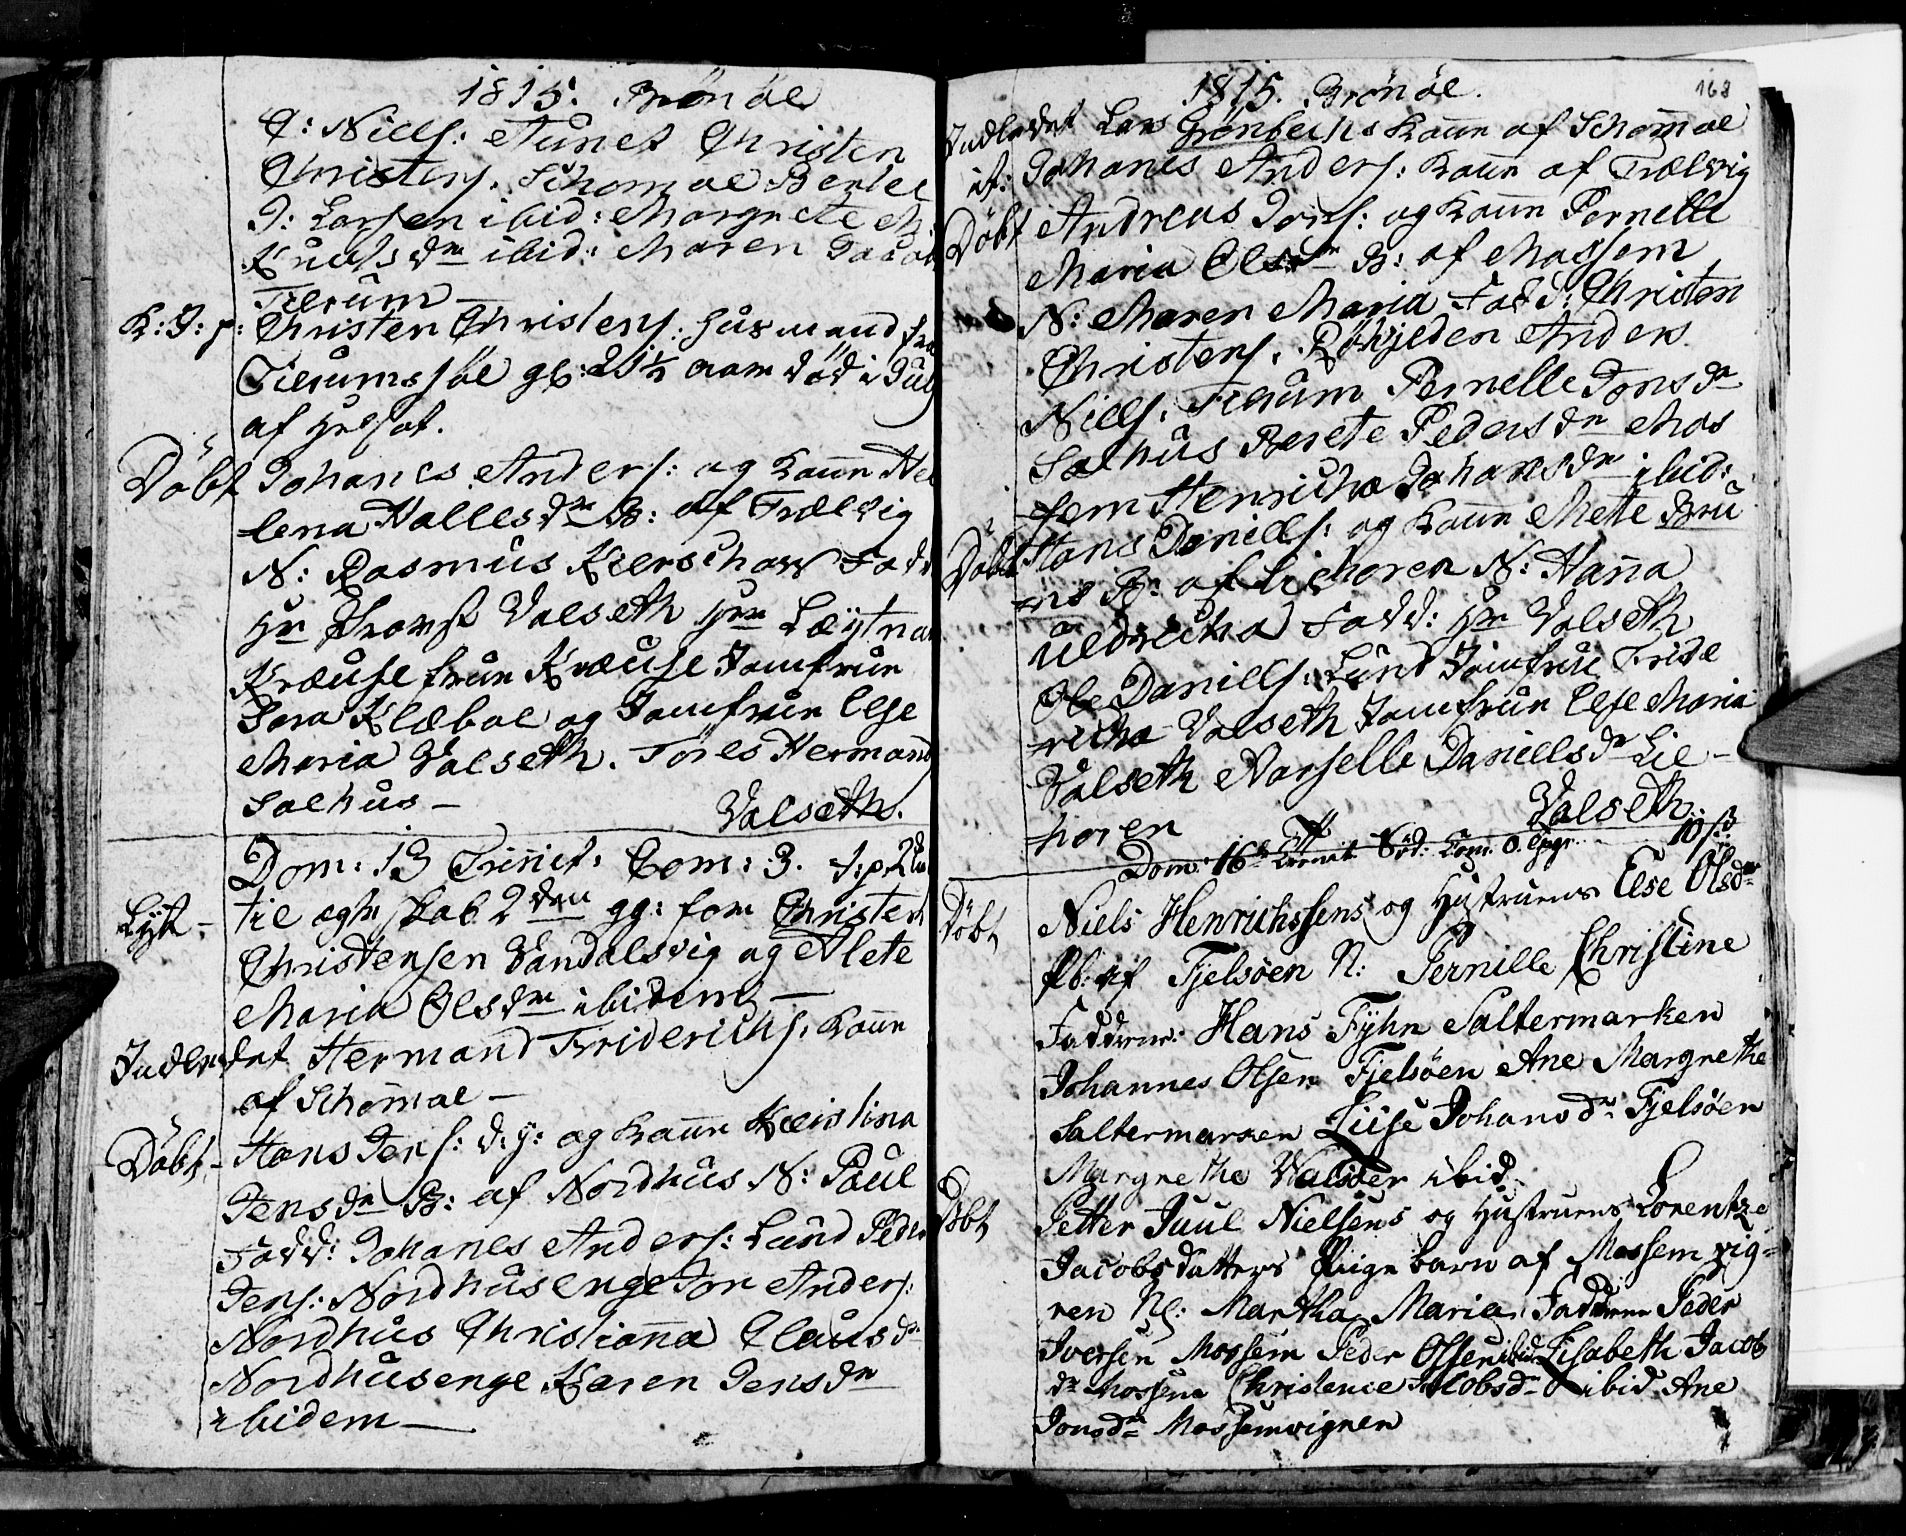 1815. Brönöe
C: Niels: Aunet Christen
Christens. Schomoe Bertel
J: Larsen ibid: Margrete M:
Knudsdr ibid: Maren Jacob
Tilrum
K: J: p: Christen Christens: Husmand fra
Tilrumsjöe gl: 21½ aar död i Jul
af
Döbt Johanes Anders: og Kone Hel
lena Hallesdr B: af Trælvig
N: Rasmus Kierschow Fadd
Hr Provst Valseth Hr Løytna
Kræuse Frue Kræuse Jomfrue
Sara Klæboe og Jomfrue Else
Maria Valseth. Töres Hermands
Salhus –
Valseth.
Dom: 13 Trinit: Com: 3. J: p:
Lyst – til ægteskab 2den gg: for Christen
Christensen Vandalsvig og Alete
Maria Olsdr ibidem –
Indledet Hermand Friderichs: Kone
af Schomoe –
Döbt – Hans Jens: d: y: og Kone Kristina
Jensdr B: af Nordhus N: Poul
Fadd: Johanes Anders: Lund Peder
Jens: Nordhusenge Jon Anders:
Nordhus Christianna Clausdr
Nordhusenge Karen Jensdr
ibidem –
1815. Brönöe.
168
Indledet Lars Grönbechs Kone af Schomoe
it: Johanes Anders: Kone af Trælvig
Döbt Andreas Jons: og Kone Pernelle
Maria Olsdr B: af Mossem
N: Maren Maria Fad: Christen
Christens. Röhjelden Anders
Niels. Tilrum Pernelle Jonsdr
Salhus Berete Pedersdr Mos
sem Henricha Johansdr ibid:
Döbt Hans Daniels: og Kone Mette Bru
ns B: af Lilhoren N: Hanna
Uldricka Fadd: Hr Valseth
Ole Daniels: Lund Jomfrue Fride
richa Valseth Jomfrue Else Maria
Valseth Marselle Danielsdr Lil –
horen
Valseth:
Dom: 16 Trinit Söd: Com: 0. 10 ß:
Döbt Niels Henrichssens og Hustruens Else Olsdr
Pb: af Fjelsöen N: Pernille Christine
Faddrene: Hans Fÿhn Saltermarken
Johannes Olsen Fjelsöen Ane Margrethe
Saltermarken Luise Johansdr Fjelsöen
Margrethe Valsöer ibid.
Döbt Petter Juul Nielsens og Hustruens Lorentze
Jacobsdatters Pige barn af Mossemvig=
nen N: Martha Maria, Faddrene Peder
Iversen Mossem Peder Olsen ibid Lisabeth Jacobs
dr Mossem Christence Jacobsdr ibid Ane
Jonsdr Mossemvignen